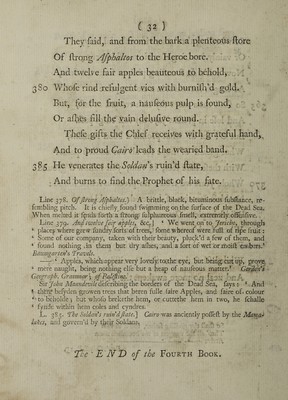 ( 32 )
They said, and from the bark a plenteous store
Of strong Asphaltos to the Heroe bore.
And twelve fair apples beauteous to behold,
380 Whose rind refulgent vies with burnish'd gold.
But, for the fruit, a nauseous pulp is found,
Or ashes fill the vain delusive round.
These gifts the Chief receives with grateful hand,
And to proud Cairo leads the wearied band.
385 He venerates the Soldan's ruin'd state,
And burns to find the Prophet of his fate.
Line 378. Of strong Asphaltos.] A brittle, black, bituminous substance, re-
sembling pitch. It is chiefly found swimming on the surface of the Dead Sea.
When melted it sends forth a strong sulphureous smell, extremely offensive.
Line 379. And twelve fair apples, &c.] ‘ We went on to Jericho, through
‘ places where grew sundry sorts of trees, some whereof were full of ripe fruit :
‘ Some of our company, taken with their beauty, pluck'd a few of them, and
‘ found nothing in them but dry ashes, and a sort of wet or moist embers.’
Baumgarten's Travels.
——‘ Apples, which appear very lovely to the eye, but being cut up, prove
‘ mere nought, being nothing else but a heap of nauseous matter.’ Gordon's
Geograph. Grammar ; of Palestine.
Sir John Maundevile describing the borders of the Dead Sea, says : ‘ And
‘ there besyden growen trees that beren fulle faire Apples, and faire of colour
‘ to beholde ; but whoso breketh hem, or cuttethe hem in two, he schalle
‘ fynde within hem coles and cyndres.
L. 385. The Soldan's ruin'd state.] Cairo was anciently possest by the Mama-
lukes, and govern'd by their Soldans.
The END of the FOURTH BOOK.